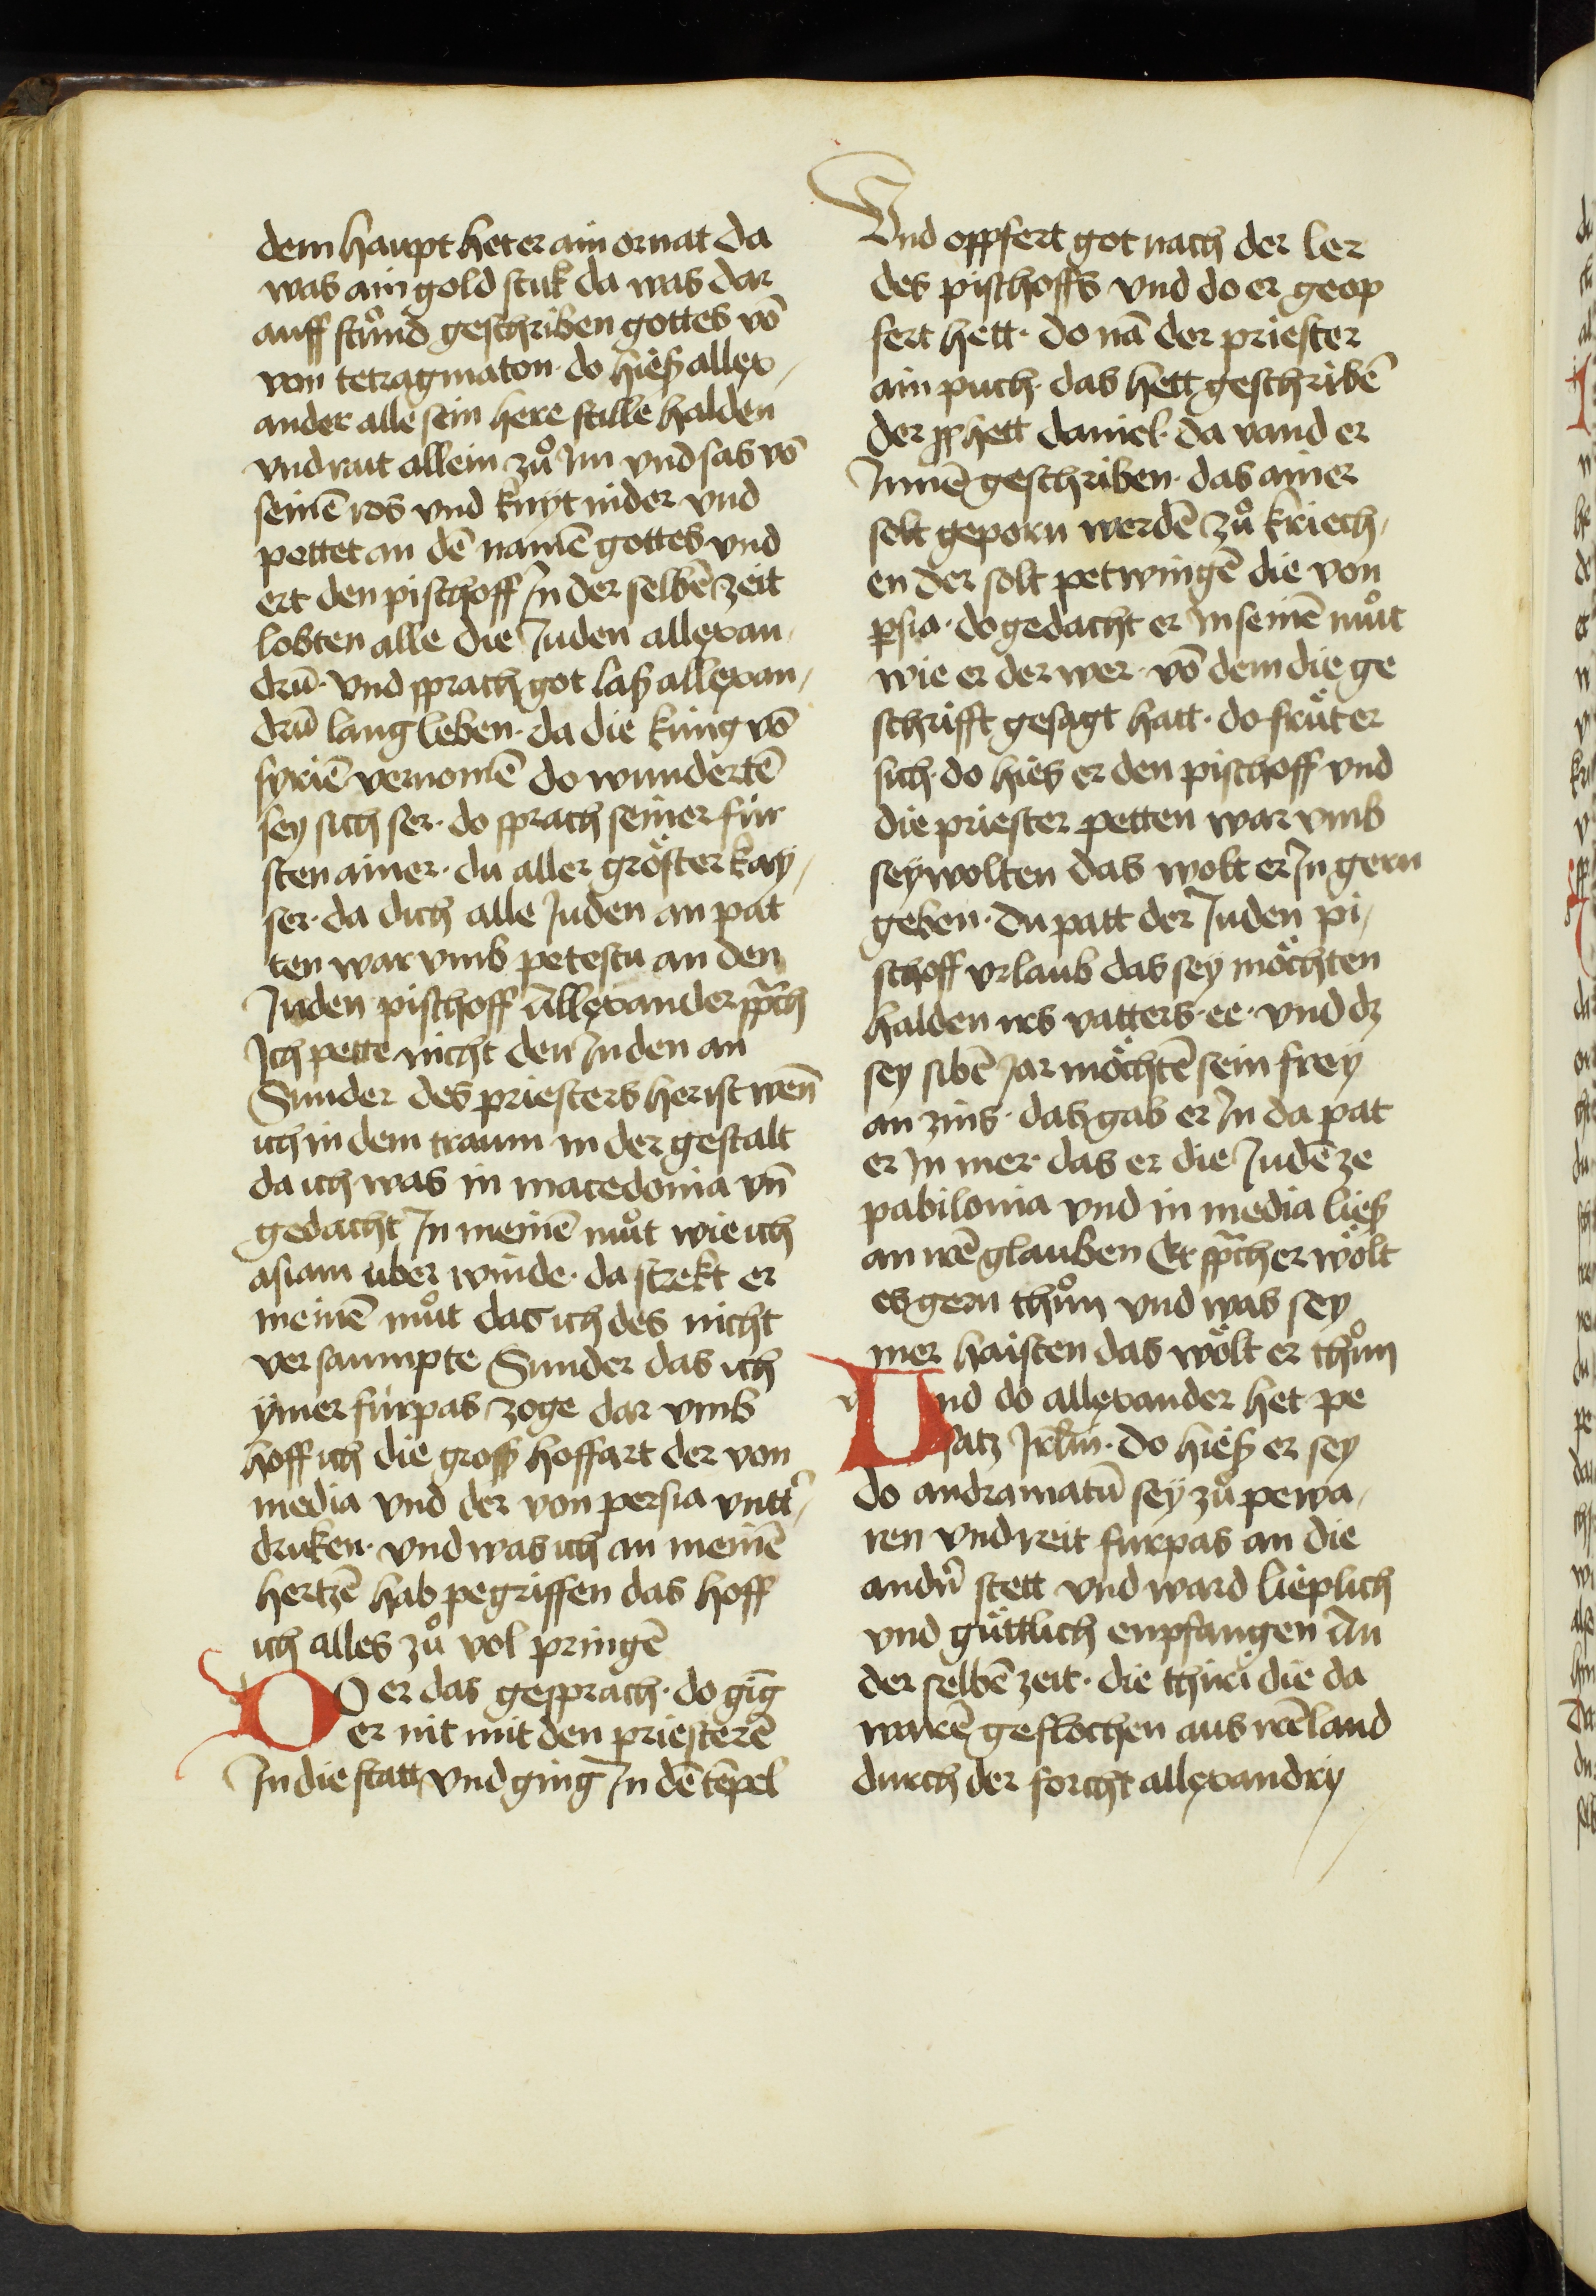 dem haupt het er ain ornat da
was ain gold stuk da was dar
auff stuͦnd geschriben gottes vō
von tetragmaton · do hieß allex-
ander alle sein here stille halden
vnd rait allein zuͦ im vnd sas vō
seinē ros vnd knyt nider vnd
pettet an dē namē gottes vnd
ert den pischoff In der selbē zeit
lobten alle die Juden allexan-
drū · vnd sprach got laß allexan-
drū lang leben · da die kung vō
syriē vernomē do wundertē
sey sich ser · do sprach seiner fur
sten ainer · du aller gröster kay-
ser · da dich alle Juden an pat
ten war vmb petestu an den
Juden pischoff Allexander sprāch
Ich pette nicht den Juden an
Sunder des priesters her ist wēn
ich in dem traum in der gestalt
da ich was in macedonia vn̄
gedacht In meinē muͦt wie ich
asiam uber winde · da strekt er
meinē muͦt das ich des nicht
versaumpte Sunder das ich
ymer furpas zoge dar vmb
hoff ich die gross hoffart der von
media vnd der von persia vntt̉-
druken · vnd was ich an meinē
hertzē hab pegriffen das hoff
ich alles zuͦ vol pringē
DO er das gesprach · do gīg
er mit mit den priesterē
In die statt vnd ging In dē tēpel
Vnd oppfert got nach der ler
des pischoffs vnd do er geop
fert hett · do nā der priester
ain puch · das hett geschribē
der pphett daniel · da vand er
Innē geschriben · das ainer
solt geporn werdē zuͦ kriech-
en der solt petwingē die von
psia · do gedacht er In seinē muͦt
wie er der wer · vō dem die ge
schrifft gesagt hatt · do fräut er
sich · do hies er den pischoff vnd
die priester petten war vmb
sey wolten das wolt er In gern
geben · Du patt der Juden pi-
schoff vrlaub das sey möchten
halden irs vatters · ee · vnd dz
sey sibē Jar möchtē sein frey
an zins · das gab er In da pat
er In mer · das er die Judē ze
pabilonia vnd in media ließ
an irē glauben Et sprāch er wölt
es gern thuͦn vnd was sey
mer haisten das wölt er thuͦn
Vnd do allexander het pe
satz Jrl̄m · do hieß er sey
do andramatū sey zuͦ pewa-
ren vnd reit furpas an die
andn̉ stett vnd ward lieplich
vnd güttlich enpfangen An
der selbē zeit · die thiri die da
warē geflochen aus irē land
durch der forcht allexandry